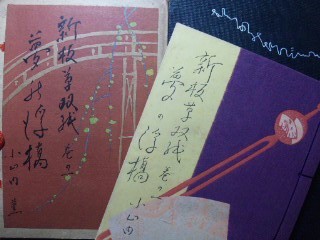 新板草双紙 巻の一
夢の浮橋
小山内薫
新板草双紙 巻の一
夢の浮橋
小山内